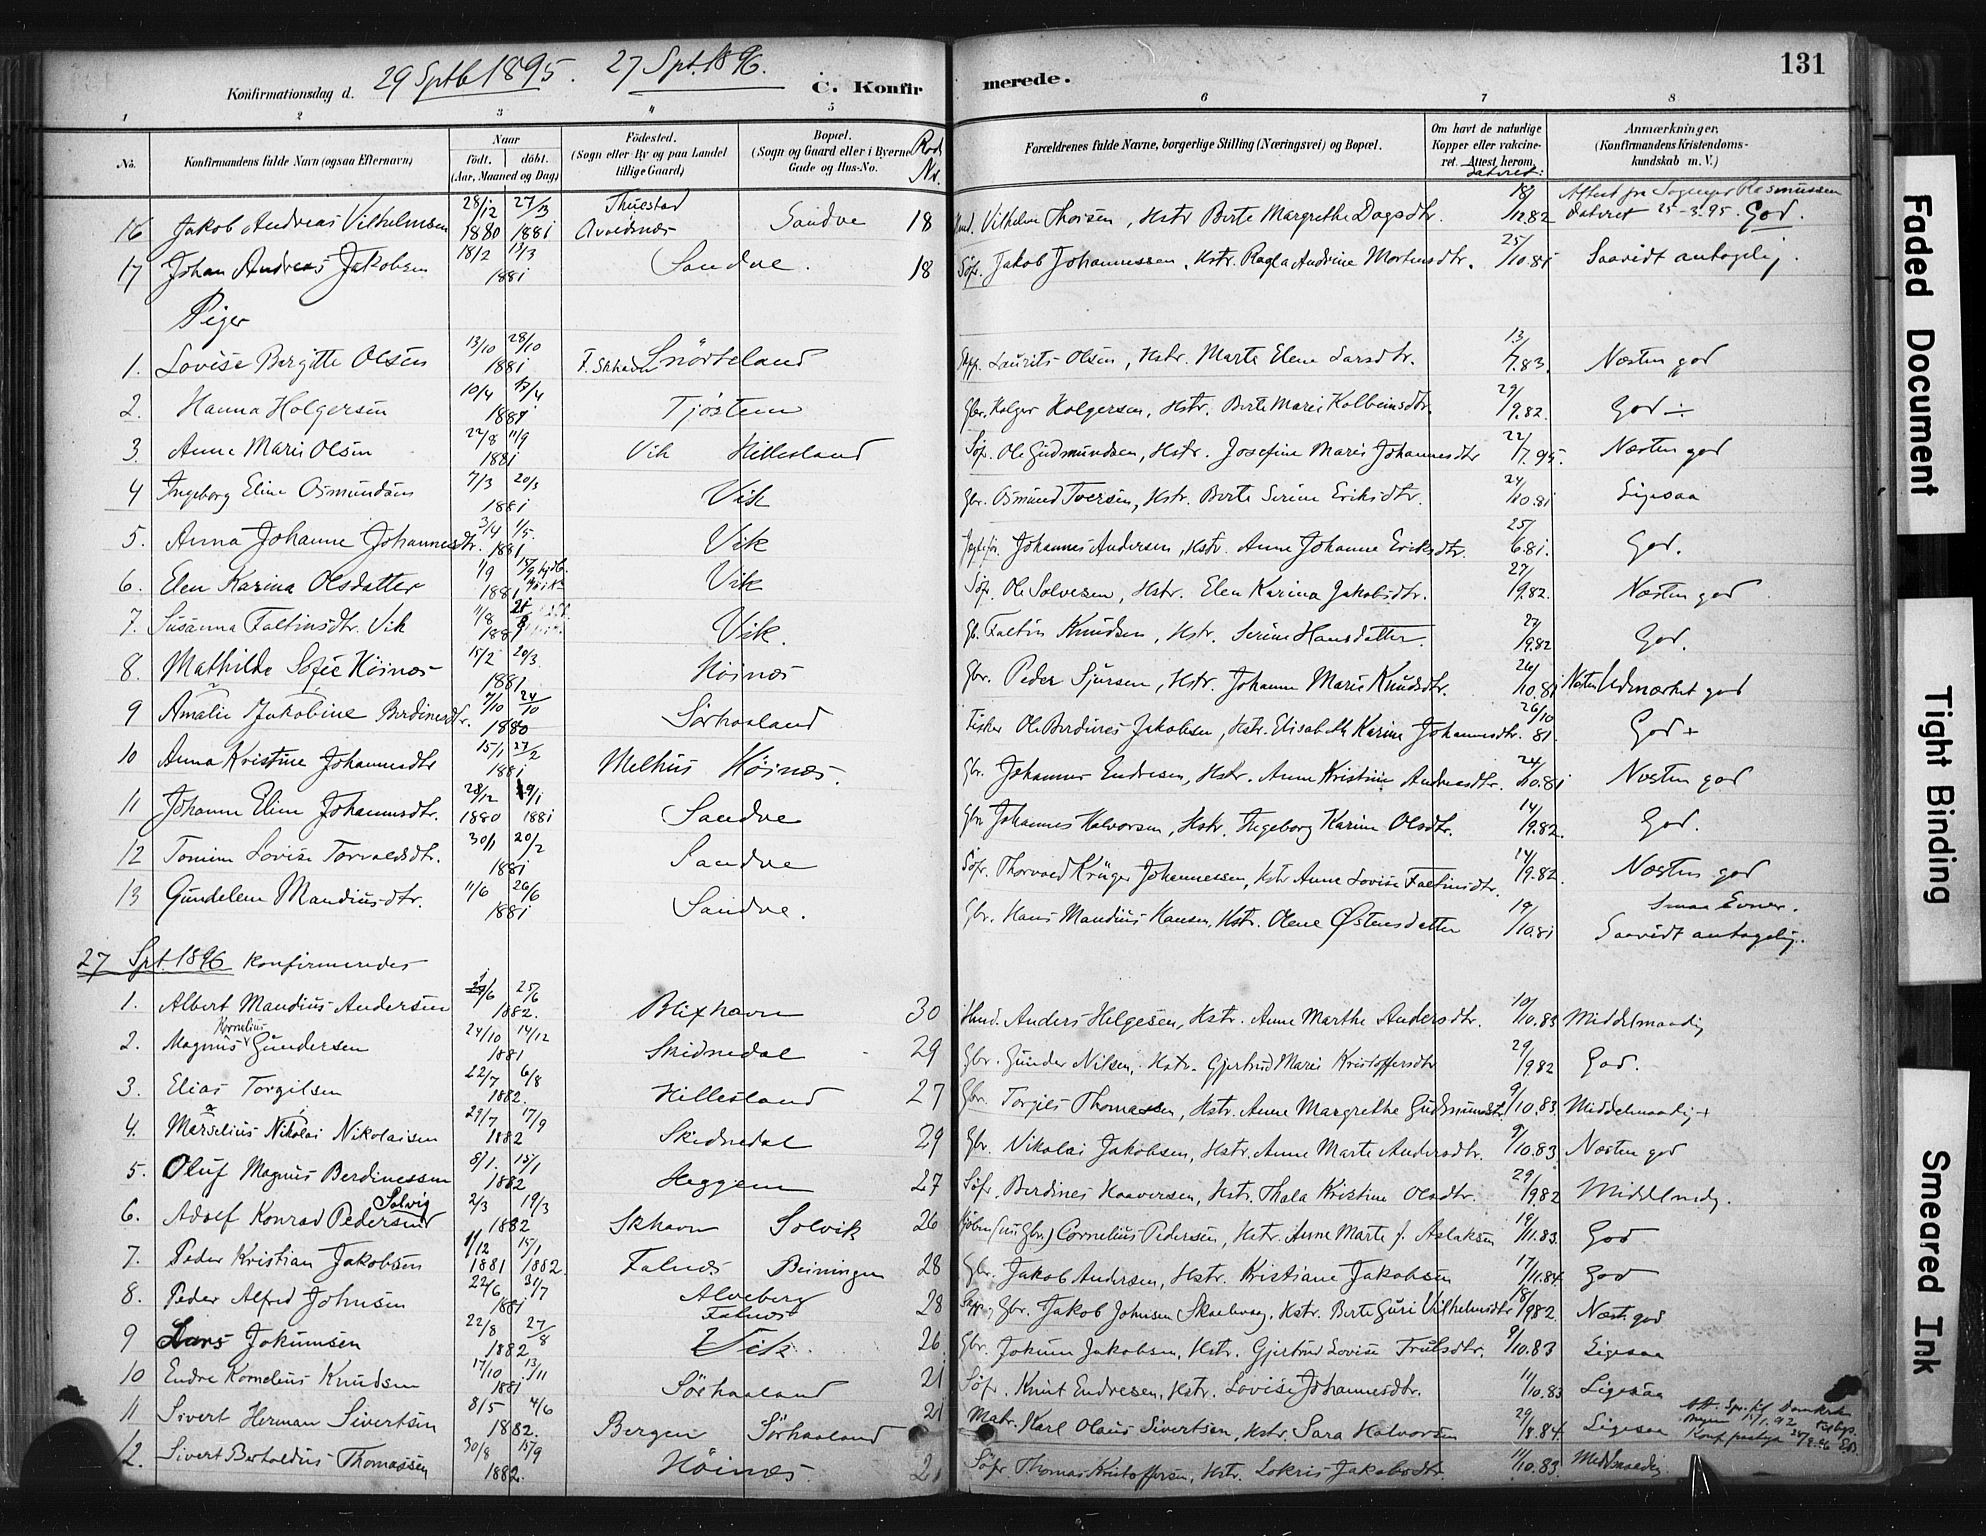 131
Konfirmationsdag d. 29 Sptb 1895. 27 Spt. 1896. C. Konfirmerede.
1 2 3 4 5 6 7 8
No. Konfirmandens fulde Navn (ogsaa Efternavn) Naar født. døbt. (Aar, Maaned og Dag) Fødested. (Sogn eller By og paa Landet tillige Gaard) Bopæl. (Sogn og Gaard eller i Byerne Gade og Hus-No. Forældrenes fulde Navne, borgerlige Stilling (Næringsvei) og Bopæl. Om havt de naturlige Kopper eller vakcineret. Attest herom, dateret: Anmærkninger, (Konfirmandens Kristendomskundskab m. V.)
16 Jakob Andreas Vilhelmsen 28/12 1880 27/3 1881 Thuestad Avaldsnæs Sandve 18 Vilhelm Thorsen, Hstr Berte Margrethe Dagsdtr. 18/12 82 Attest fra Sogneprest Rasmussen dateret 25-3.95. God.
17 Johan Andreas Jakobsen 18/2 13/3 1881 Sandve. 18 Søfr. Jakob Johannessen, Hstr. Ragla Andrine Mortensdtr. 25/10.81 Saavidt antagelig.
Piger
1. Lovise Bergitte Olsen 13/10 28/10 1881 Snørteland Laurits Olsen, Hstr. Marta Elene Larsdtr. 13/7.83. Næsten god
2. Hanna Holgersen 10/4 1881 Tjøstem Gbr. Holger Holgersen, Hstr. Berte Marie Kolbeinsdtr. 29/9.82. God ÷
3. Anne Marie Olsen 22/8 11/9 1881 Vik Hillesland Søfr. Ole Gudmundsen, Hstr. Josefine Marie Johannesdtr 22/7.95. Næsten god
4 Ingeborg Eline Osmundsen 7/3 20/3 1881 Vik Gbr. Osmund Iversen, Hstr. Berte Serine Eriksdtr. 24/10.81 Ligesaa
5. Anna Johanne Johannesdtr. 3/4 1/5. 1881 Vik Johannes Andersen, Hstr. Anne Johanne Eriksdtr. 25/6.81. God.
6. Elen Karina Olsdatter 1/9 1881 Vik Søfr. Ole Solvesen, Hstr. Elen Karina Jakobsdtr. 27/9.82. Næsten god
7. Susanna Faltinsdtr. Vik 11/8 1881 Vik. Gb. Faltin Knudsen, Hstr. Serine Hansdatter 27/9.82 God.
8. Mathilde Sofie Høinæs 15/2 20/3. 1881 Høinæs Gbr. Peder Sjursen, Hstr. Johanne Marie Knudsdtr. 26/10.81 Næsten Udmærket god
9 Amalie Jakobine Berdinesdtr. 7/10 24/10 1880 Sørhaaland Fisker Ole Berdines Jakobsen, Hstr. Elisabeth Karine Johannesdtr. 26/10 81. God +
10 Anna Kristine Johannesdtr 15/1 27/2 1881 Melhus Høinæs. Gbr. Johannes Endresen, Hstr. Anne Kristine Andreasdtr. 24/10.81 Næsten god
11 Johanne Eline Johannesdtr. 28/12 1880 9/1 1881 Sandve Gbr Johannes Halvorsen, Hstr. Ingeborg Karine Olsdtr. 14/9.82. God.
12 Tomine Lovise Torvaldsdtr. 30/1 20/2 1881 Sandve Søfr. Thorvald Krüger Johannessen, Hstr Anne Lovise Faltinsdtr. 14/9.82. Næsten god
13 Gundelene Mandiusdtr. 11/6 26/6 1881 Sandve. Gbr. Hans Mandius Hansen, Hstr. Olene Østensdatter 19/10.81 Smaa Evner. Saavidt antagelig.
27 Spt. 1896 konfirmeredes
1. Albert Mandius Andersen 25/6 1882. Blixhavn 30 Anders Helgesen, Hstr. Anne Marthe Andersdtr. 10/10.83 Middelmaadig
2. Magnus Kornelius Gundersen 24/10 14/12 1881 Skidnedal 29 Gbr. Gunder Nilsen, Hstr. Gjertrud Marie Kristoffersdtr 29/9.82 God.
3. Elias Torgilsen 22/7 6/8 1882. Hillesland 27 Gbr. Torgies Thomassen, Hstr. Anne Margrethe Gudmundsdtr. 9/10.83. Middelmaadig +
4. Marselius Nikolai Nikolaisen 29/7 17/9 1882 Skidnedal 29 Gbr. Nikolai Jakobsen, Hstr. Anne Marte Andersdtr. 9/10.83. Næsten god
5. Oluf Magnus Berdinessen 8/1. 15/1 1882 Heggem 27 Søfr. Berdines Haaversen, Hstr. Thala Kristine Olsdtr. 29/9.82 Middelmaadig.
6. Adolf Konrad Pedersen Solvig 2/3 19/3 1882 Skhavn Solvik 26 (nu Gbr.) Cornelius Pedersen, Hstr. Anne Marte f. Aslaksen 19/11.83. God
7. Peder Kristian Jakobsen 11/12 1881 15/1 1882. Falnæs Beiningen 28 Gbr. Jakob Andersen, Hstr. Kristiane Jakobsen 17/11.84. God
8. Peder Alfred Johnsen 22/6 31/7 1881 Alveberg Falnæs 28 Gbr. Jakob Johnsen Skaelvag, Hstr. Berte Guri Vilhelmsdtr 18/9 82. Næst. god
9 Lars Jokumsen 22/8 27/8 1882 Vik 26 Gbr. Jokum Jakobsen, Hstr. Gjertrud Lovise Trulsdtr. 9/10.83 Ligesaa
10 Endre Kornelius Knudsen 17/10 13/11 1881 Sørhaaland 21 Søfr. Knut Endresen, Hstr. Lovise Johannesdtr. 11/10.83 Ligesaa
11 Sivert Herman Sivertsen 8/5 4/6 1882. Bergen Sørhaaland 21 Matr. Karl Olaus Sivertsen, Hstr. Sara Halvorsen 29/8.84. Ligesaa
12. Sivert Bertoldius Thomassen 30/8 15/9 1882. Høinæs 21 Søfr Thomas Kristoffersen, Hstr. Lokris Jakobsdtr. 11/10.83. Middelmaadig
Faded Document
Tight Binding
Smeared Ink